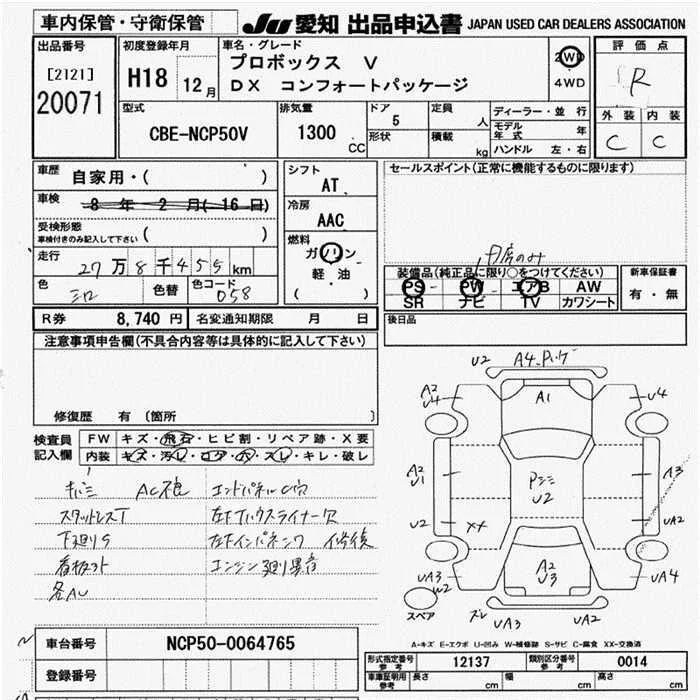 車内保管・守衛保管
JU 愛知 出品申込書 JAPAN USED CAR DEALERS ASSOCIATION
出品番号
[2121]
20071
初度登録年月
H18 12月
車名・グレード
プロボックス V
DX コンフォートパッケージ
2WD
4WD
評価点
R
外装 内装
C C
型式
CBE-NCP50V
排気量
1300
CC
ドア
5
形状
定員
人
積載
kg
ディーラー・並行
モデル年式 年
ハンドル 左・右
車歴
自家用・( )
車検
8年 2月(16日)
受検形態
車検付きのみ記入して下さい ( )
走行
27万8千455km
色
色替
色コード
058
シフト
AT
冷房
AAC
燃料
ガソリン
軽・油
( )
セールスポイント(正常に機能するものに限ります)
内房のみ
装備品(純正品に限り○をつけてください)
PS PW エアB AW
SR ナビ TV カワシート
新車保証書
有・無
R券 8,740円
名変通知期限 月 日
後日品
注意事項申告欄(不具合内容等は具体的に記入して下さい)
修復歴 有 〔箇所
検査員
記入欄
FW キズ・飛石・ヒビ割・リペア跡・X要
内装 キズ・汚レ・コゲ・穴・スレ・キレ・破レ
スタッドレスT
下廻りS
各AU
エンドパネルC穴
左下インパネシワ 修復
エンジン廻り異音
U2
A2
U4
A1
U4
A2
U1
Pシミ
U2
A3
U2
XX
UA2
UA3
W2
A2
U3
UA4
スペア
ズレ
UA3
UA2
A-キズ E-エクボ U-凹み W-補修跡 S-サビ C-腐食 XX-交換済
車台番号
NCP50-0064765
登録番号
形式指定番号
参考
12137
類別区分番号
参考
0014
車庫証明用
参考
長さ
cm
幅
cm
高さ
cm